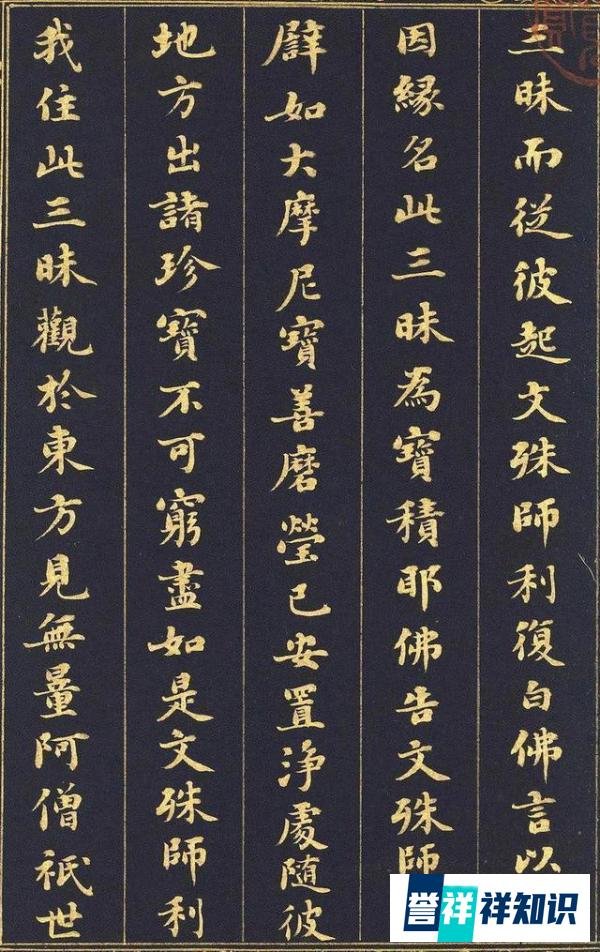 三昧而從彼起文殊師利復白佛言以
因緣名此三昧為寶積耶佛告文殊師
譬如大摩尼寶善磨瑩已安置淨處隨彼
地方出諸珍寶不可窮盡如是文殊師利
我住此三昧觀於東方見無量阿僧祇世
誉祥祥知识